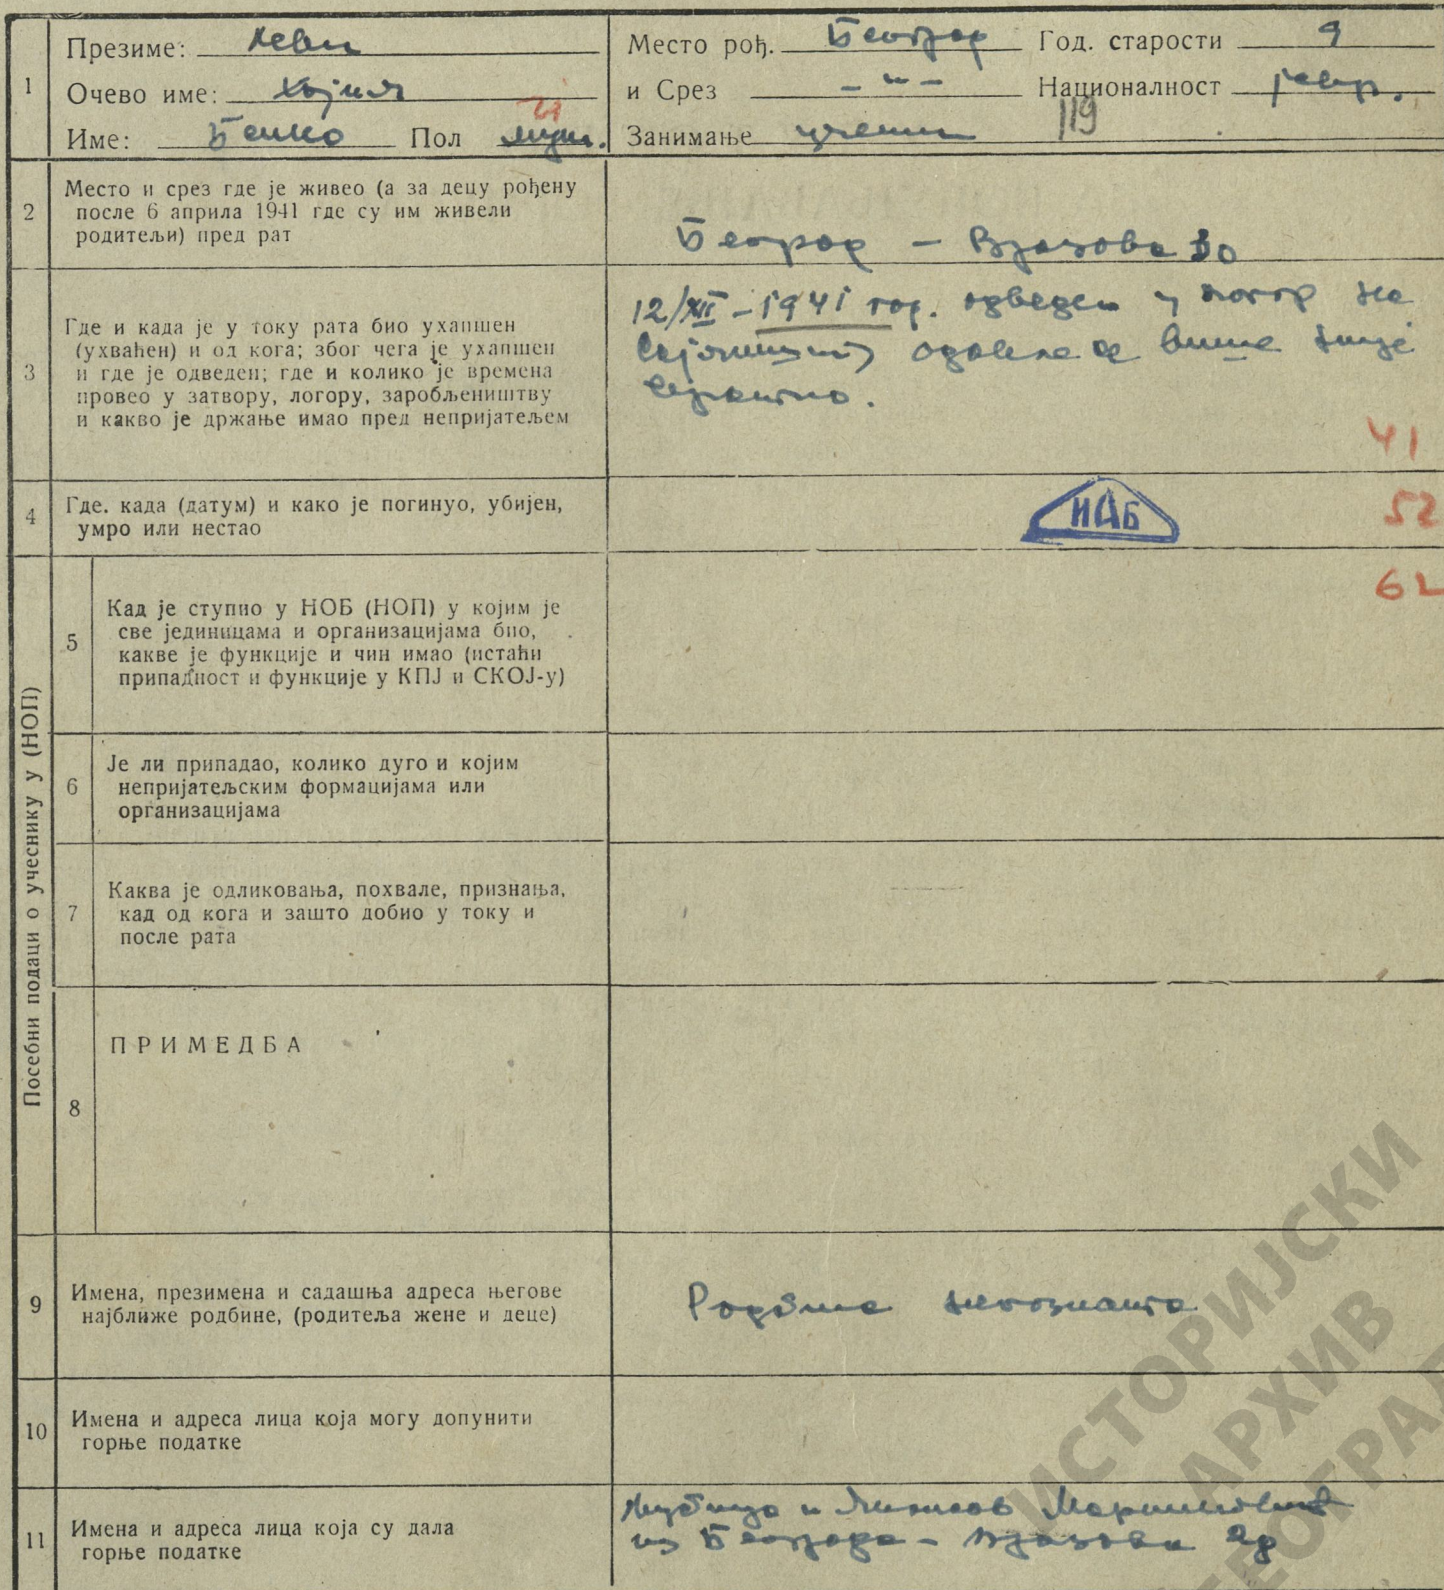 1
Презиме: Леви
Очево име:
Име: Бенко Пол муш.
21
Место рођ. Београд Год. старости 9
и Срез - " - Националност јевр.
Занимање ученик 119
2
Место и срез где је живео (а за децу рођену
после 6 априла 1941 где су им живели
родитељи) пред рат
Београд -
3
Где и када је у току рата био ухапшен
(ухваћен) и од кога; због чега је ухапшен
и где је одведен; где и колико је времена
провео у затвору, логору, заробљеништву
и какво је држање имао пред непријатељем
12/XII - 1941 год. одведен у логор на
Сајмишту одакле се више није
вратио.
41
4
Где. када (датум) и како је погинуо, убијен,
умро или нестао
ИАБ
52
Посебни подаци о учеснику у (НОП)
5
Кад је ступио у НОБ (НОП) у којим је
све јединицама и организацијама био,
какве је функције и чин имао (истаћи
припадност и функције у КПЈ и СКОЈ-у)
62
6
Је ли припадао, колико дуго и којим
непријатељским формацијама или
организацијама
7
Каква је одликовања, похвале, признања,
кад од кога и зашто добио у току и
после рата
8
ПРИМЕДБА
9
Имена, презимена и садашња адреса његове
најближе родбине, (родитеља жене и деце)
Родбина непозната
10
Имена и адреса лица која могу допунити
горње податке
11
Имена и адреса лица која су дала
горње податке
Љубица и
из Београда -
ИСТОРИЈСКИ
АРХИВ
БЕОГРАД